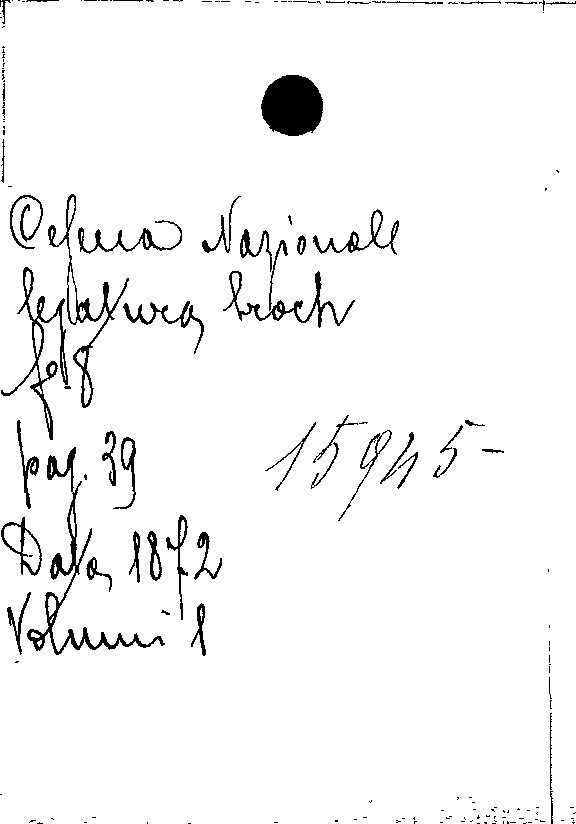 Nazionale
legatura, broch
f° 8
pag. 39
15945-
Data, 1872
Volumi 1